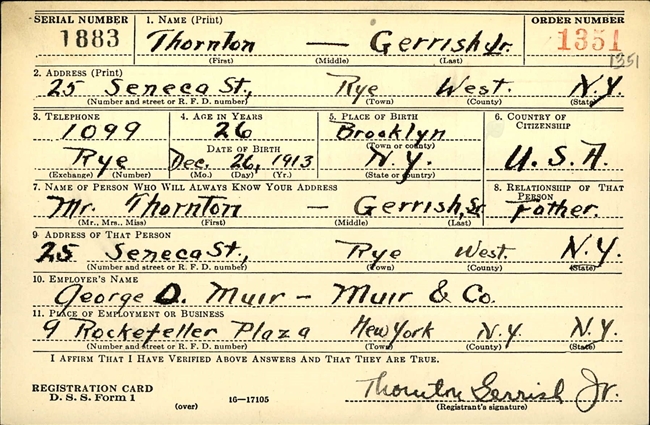 SERIAL NUMBER 1. NAME (Print) ORDER NUMBER
1883 Thornton — Gerrish Jr. 1351
1351
(First) (Middle) (Last)
2. ADDRESS (Print)
25 Seneca St., Rye West. N.Y.
(Number and street or R. F. D. number) (Town) (County) (State)
3. TELEPHONE 4. AGE IN YEARS 5. PLACE OF BIRTH 6. COUNTRY OF CITIZENSHIP
1099 26 Brooklyn
(Town or county)
DATE OF BIRTH
Rye Dec. 26, 1913 N.Y. U.S.A.
(Exchange) (Number) (Mo.) (Day) (Yr.) (State or country)
7. NAME OF PERSON WHO WILL ALWAYS KNOW YOUR ADDRESS 8. RELATIONSHIP OF THAT PERSON
Mr. Thornton — Gerrish, Sr. Father.
(Mr., Mrs., Miss) (First) (Middle) (Last)
9. ADDRESS OF THAT PERSON
25 Seneca St., Rye West. N.Y.
(Number and street or R. F. D. number) (Town) (County) (State)
10. EMPLOYER'S NAME
George D. Muir — Muir & Co.
11. PLACE OF EMPLOYMENT OR BUSINESS
9 Rockefeller Plaza New York N.Y. N.Y.
(Number and street or R. F. D. number) (Town) (County) (State)
I AFFIRM THAT I HAVE VERIFIED ABOVE ANSWERS AND THAT THEY ARE TRUE.
REGISTRATION CARD
D. S. S. Form 1 Thornton Gerrish Jr.
(over) 16—17105 (Registrant's signature)